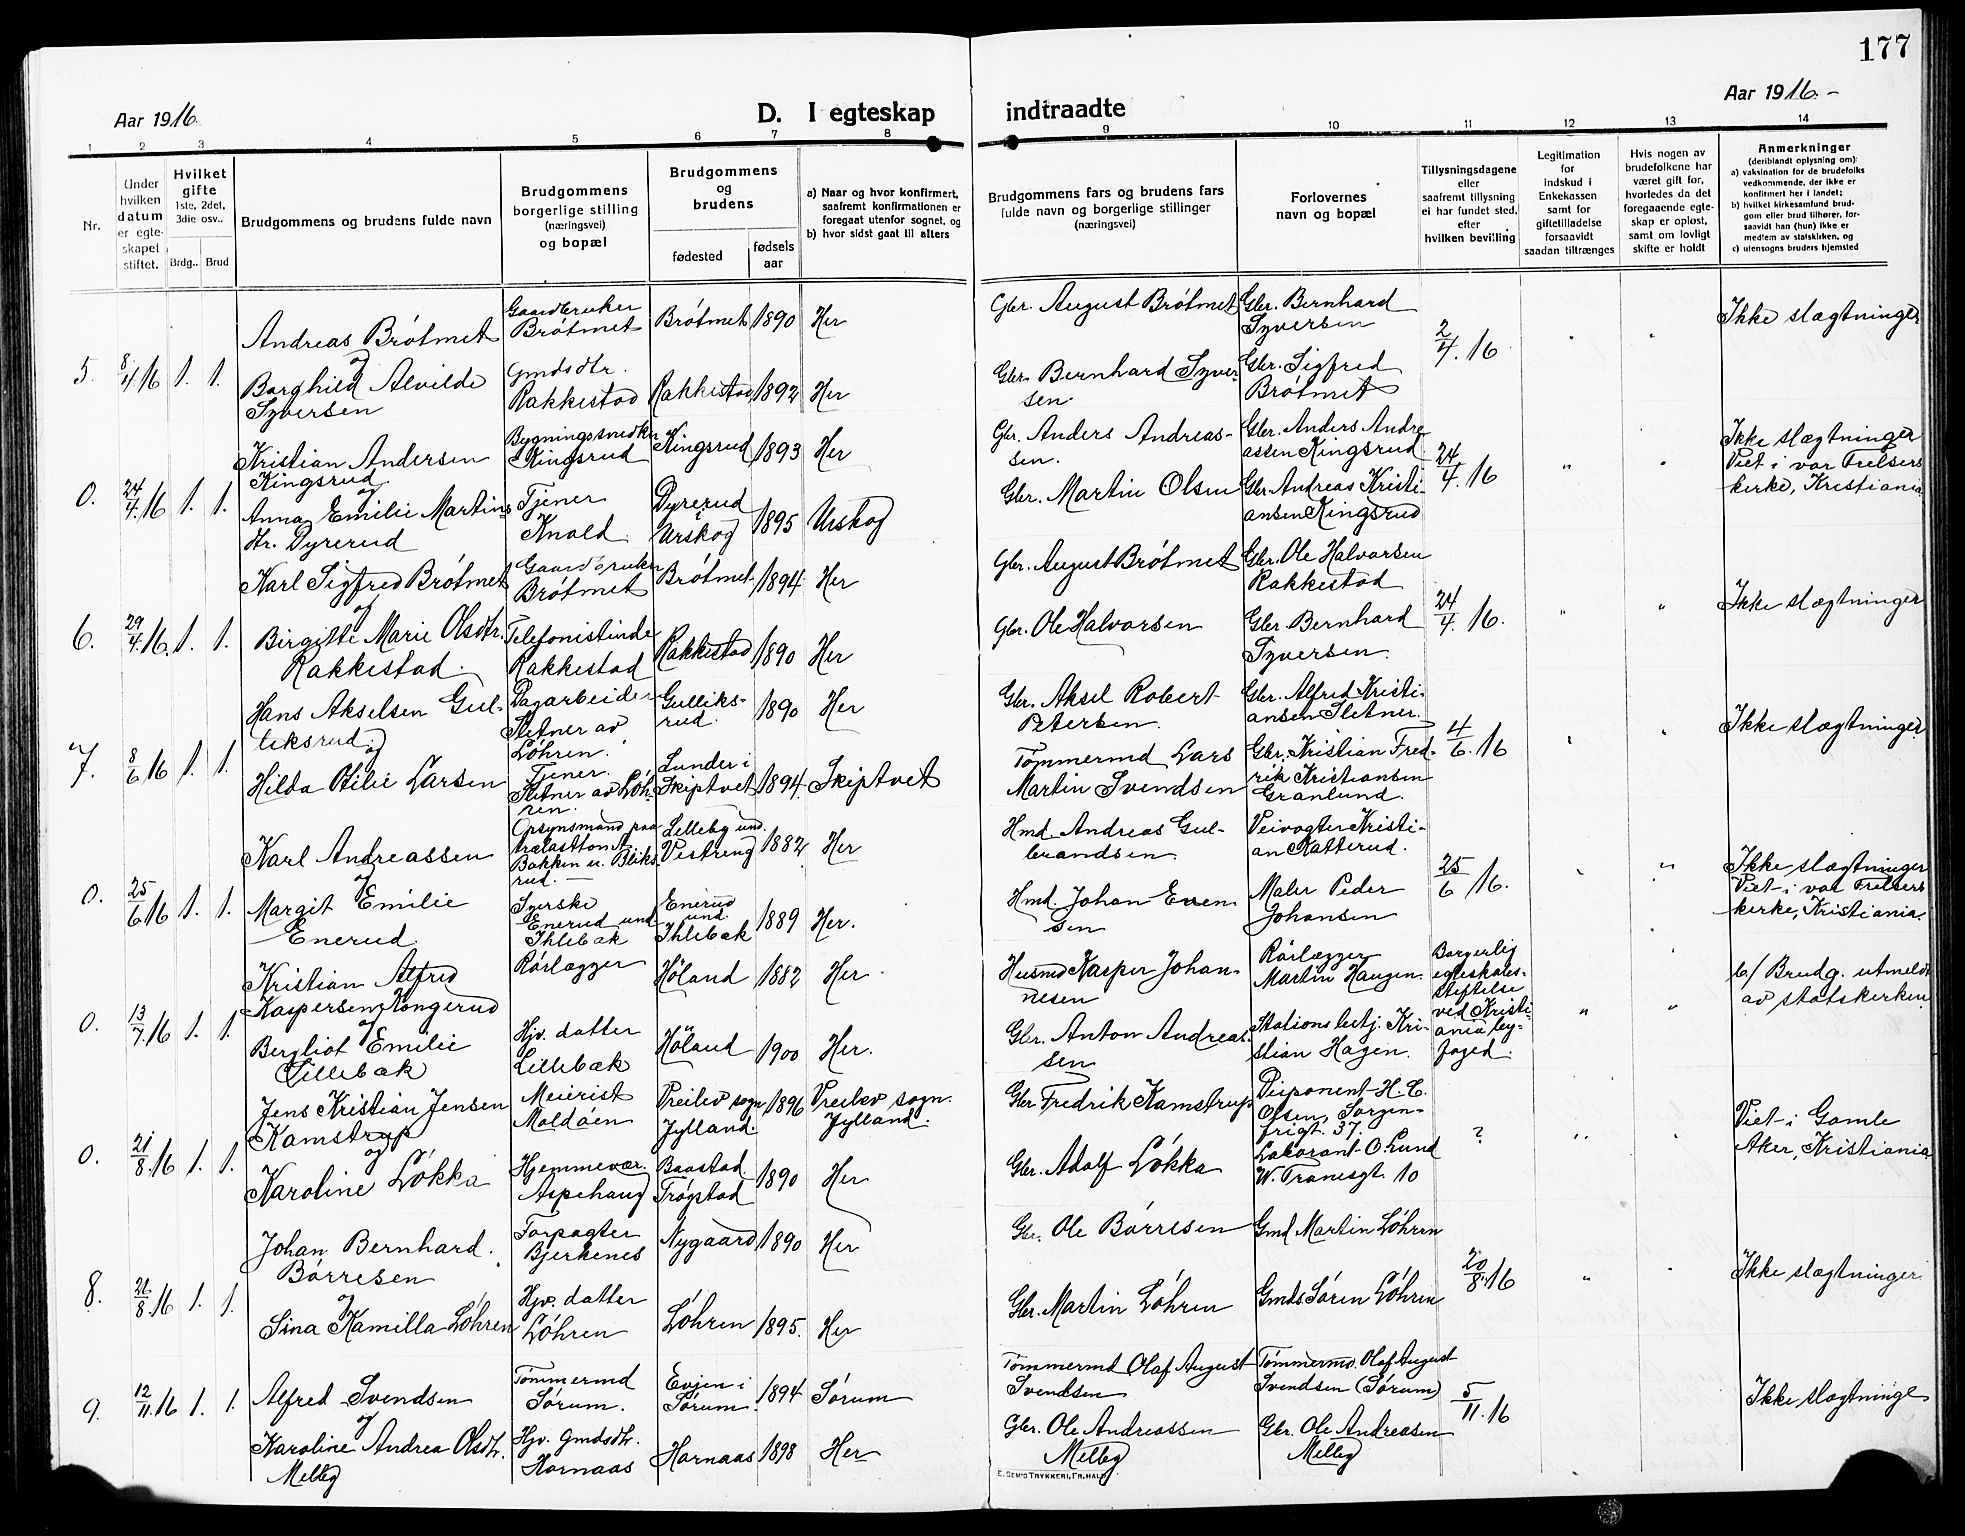 177
Aar 1916.
D. I egteskap indtraadte
Aar 1916.-
1 2 3 4 5 6 7 8 9 10 11 12 13 14
Nr.
Under hvilken datum er egteskapet stiftet.
Hvilket gifte 1ste, 2det, 3die osv..
Brdg..
Brud
Brudgommens og brudens fulde navn
Brudgommens borgerlige stilling (næringsvei) og bopæl
Brudgommens og brudens
fødested
fødsels aar
a) Naar og hvor konfirmert, saafremt konfirmationen er foregaat utenfor sognet, og
b) hvor sidst gaat til alters
Brudgommens fars og brudens fars fulde navn og borgerlige stillinger (næringsvei)
Forlovernes navn og bopæl
Tillysningsdagene eller saafremt tillysning ei har fundet sted, efter hvilken bevilling
Legitimation for indskud i Enkekassen samt for giftetilladelse forsaavidt saadan tiltrænges
Hvis nogen av brudefolkene har været gift før, hvorledes da det foregaaende egteskap er opløst, samt om lovligt skifte er holdt
Anmerkninger
(deriblandt oplysning om):
a) vaksination for de brudefolks vedkommende, der ikke er konfirmert her i landet;
b) hvilket kirkesamfund brudgom eller brud tilhører, forsaavidt han (hun) ikke er medlem av statskirken, og
c) utensogns bruders hjemsted
5. 8/4 16 1. 1.
Andreas Brötmet
og
Borghild Alvilde
Syversen
Gaardbruker
Brötmet
Gmdsdtr.
Rakkestad
Brötmet 1890 Her
Rakkestad 1892 Her
Gbr. August Brötmet
Gbr. Bernhard Syversen.
Gbr. Bernhard
Syversen
Gbr. Sigfred
Brötmet
2/4. 16
Ikke slægtninger
0. 24/4. 16 1. 1.
Kristian Andersen
Kingsrud
og
Anna Emilie Martinsdtr. Dyrerud
Bygningssnedker
Kingsrud
Tjener
Knold
Kingsrud 1893 Her
Dyrerud
Urskog 1895 Urskog
Gbr. Anders Andreassen.
Gbr. Martin Olsen
Gbr. Anders Andreassen Kingsrud
Gbr. Andreas Kristiansen Kingsrud
24/4. 16
Ikke slægtninger
Viet i vor Frelsers
kirke, Kristiania
6. 29/4. 16. 1. 1.
Karl Sigfred Brötmet
og
Birgitte Marie Olsdtr.
Rakkestad.
Gaardbruker
Brötmet
Telefonistinde
Rakkestad
Brötmet 1894 Her
Rakkestad 1890 Her
Gbr. August Brötmet
Gbr. Ole Halvorsen
Gbr. Ole Halvorsen
Rakkestad
Gbr. Bernhard
Syversen.
24/4. 16.
Ikke slægtninger
7. 8/6 16 1. 1.
Hans Akselsen Gulliksrud
og
Hilda Otilie Larsen
Dagarbeider
Sletner av
Löhren.
Tjener.
Sletner av Löhren.
Gulliksrud. 1890 Her
Lunder i
Skiptvet 1894. Skiptvet
Gbr. Aksel Robert
Petersen.
Tömmermd Lars
Martin Svendsen
Gbr. Alfred Kristiansen Sletner.
Gbr. Kristian Fredrik Kristiansen
Granlund.
4/6. 16
Ikke slægtninger
0. 25/6 16 1. 1.
Karl Andreassen
og
Margit Emilie
Enerud.
Opsynsmand paa
trælasttomt
Bakken u. Bliksrud.
Syerske
Enerud und
Ihlebæk
Lilleby und.
Vestreng 1882 Her
Enerud
und
Ihlebæk 1889 Her.
Hmd. Andreas Gulbrandsen.
Hmd. Johan Evensen
Veivogter Kristian Katterud.
Maler Peder
Johansen
25/6 16.
Ikke slægtninger
Viet i vor Frelsers
kirke, Kristiania.
0. 13/7. 16 1. 1.
Kristian Alfred
Kaspersen Kongerud
og
Bergliot Emilie
Lillebæk
Rörlægger
Hjv. datter
Lillebæk
Höland 1882 Her
Höland 1900 Her.
Husmd Kasper Johannesen
Gbr. Anton Andreassen
Rörlægger
Martin Haugen.
Stationsbetj. Kristian Hagen.
Borgerlig
egteskabsstiftelse
ved Kristiania byfoged.
b/ Brudg. utmeldt
av statskirken
0. 21/8. 16 1. 1.
Jens Kristian Jensen
Kamstrup
og
Karoline Lökka
Meierist
Moldöen
Hjemmevær.
Aspehaug
Vreilev sogn
Jylland. 1896 Vreilev sogn.
Jylland.
Baastad
Trögstad 1890 Her
Gbr Fredrik Kamstrup
Gbr. Adolf Lökka
Disponent H. C.
Olsen, Sorgenfrigt. 37.
Lakorant O. Lund
W. Tranesgt. 10
?
Viet i Gamle
Aker, Kristiania
8. 26/8. 16 1. 1.
Johan Bernhard
Börresen
og
Sina Kamilla Löhren
Forpagter
Bjerkenes
Hjv. datter
Löhren
Nygaard 1890 Her
Löhren 1895. Her
Gbr. Ole Börresen
Gbr. Martin Löhren
Gmd Martin Löhren
Gmds Sören Löhren
20/8. 16
Ikke slægtninger
9. 12/11. 16 1. 1.
Alfred Svendsen
og
Karoline Andrea Olsdtr.
Melleg
Tömmermd
Sörum.
Hjv. Gmdsdtr.
Hornaas
Evjen i
Sörum. 1894 Sörum
Hornaas 1898 Her
Tömmermd Olaf August
Svendsen
Gbr. Ole Andreassen
Melleg
Tömmermd. Olaf August
Svendsen (Sörum)
Gbr. Ole Andreasen
Melleg
5/11. 16
Ikke slægtninge
E. SEM'S TRYKKERI, FR.HALD